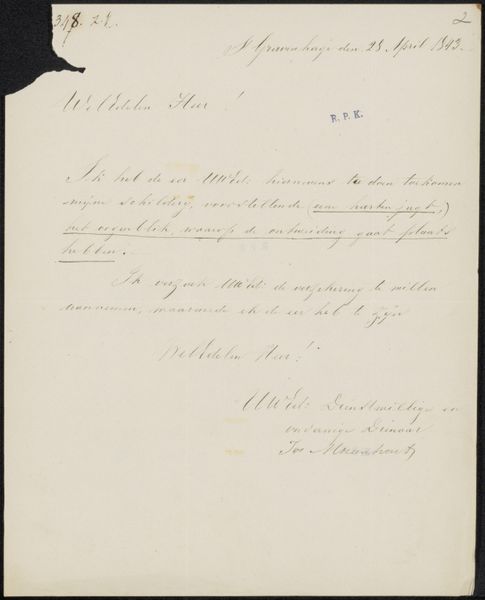 2
S Gravenhage den 28 April 1843.
WelEdelen Heer!
R. P. K.
Ik heb de eer UWEd: hiernevens te doen toekomen
mijne schilderij, voorstellende (een herten jagt,)
het oogenblik, waarop de ontweiding gaat plaats
hebben.
Ik verzoek UWEd: de verzekering te willen
aannemen, waarmede ik de eer heb te zijn
WelEdelen Heer!
UWEd: Dienstwillige en
onderdanige Dienaar
Jos Moerenhout